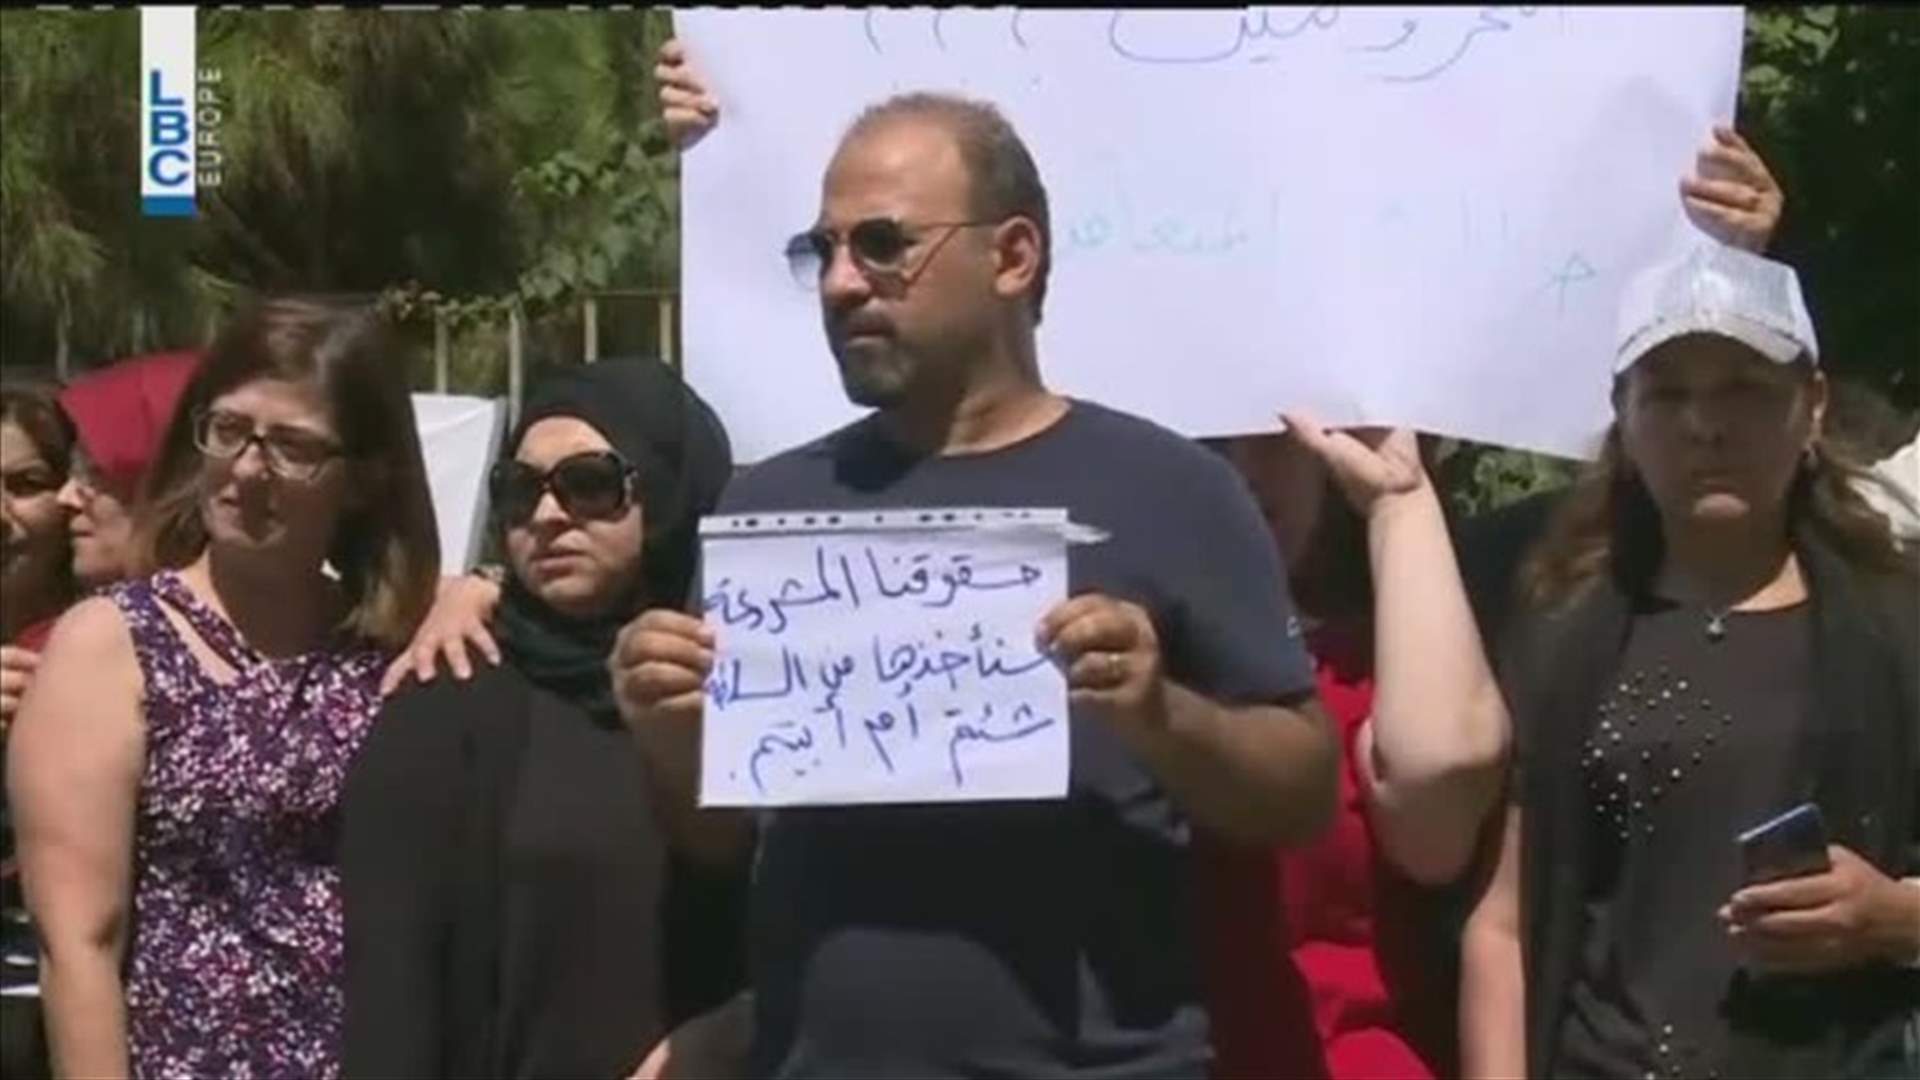 LBC
EUROPE
المحرومين
المتعاقد
حقوقنا المشروعة
سنأخذها من السلطة
شئتم أم أبيتم.